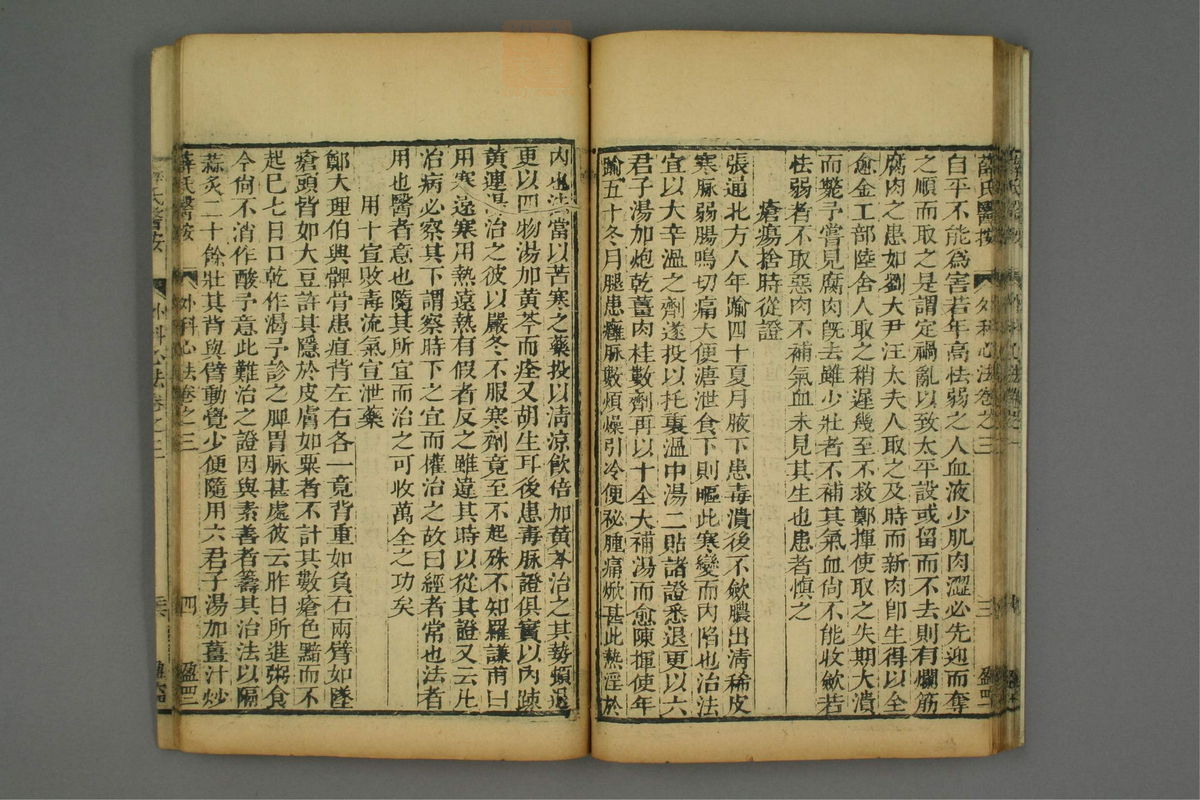 薛氏醫按 外科心法卷之三 三 盈四二
自平不能為害若年高怯弱之人血液少肌肉澀必先迎而奪
之順而取之是謂定禍亂以致太平設或留而不去則有爛筋
腐肉之患如劉大尹汪太夫人取之及時而新肉即生得以全
愈金工部陸舍人取之稍遲幾至不救鄭揮使取之失期大潰
而斃予嘗見腐肉旣去雖少壯者不補其氣血尙不能收斂若
怯弱者不取惡肉不補氣血未見其生也患者慎之
瘡瘍捨時從證
張通北方人年踰四十夏月腋下患毒潰後不斂膿出清稀皮
寒脉弱腸鳴切痛大便溏泄食下則嘔此寒變而內陷也治法
宜以大辛溫之劑遂投以托裏溫中湯二貼諸證悉退更以六
君子湯加炮乾薑肉桂數劑再以十全大補湯而愈陳揮使年
踰五十冬月腿患癰脉數煩燥引冷便秘腫痛焮甚此熱淫於
內也法當以苦寒之藥投以清凉飲倍加黃芩治之其勢頓退
更以四物湯加黃芩而痊又胡生耳後患毒脉證俱實以內踈
黃連湯治之彼以嚴冬不服寒劑竟至不起殊不知羅謙甫曰
用寒遠寒用熱遠熱有假者反之雖違其時以從其證又云凡
治病必察其下謂察時下之宜而權治之故曰經者常也法者
用也醫者意也隨其所宜而治之可收萬全之功矣
用十宣敗毒流氣宣泄藥
鄭大理伯興髀骨患疽背左右各一竟背重如負石兩臂如墜
瘡頭皆如大豆許其隱於皮膚如粟者不計其數瘡色黯而不
起巳七日口乾作渴予診之脾胃脉甚處彼云昨日所進粥食
今尙不消作酸予意此難治之證因與素善者籌其治法以隔
蒜炙二十餘壯其背與臂動覺少便隨用六君子湯加薑汁炒
薛氏醫按 外科心法卷之三 四 盈四三